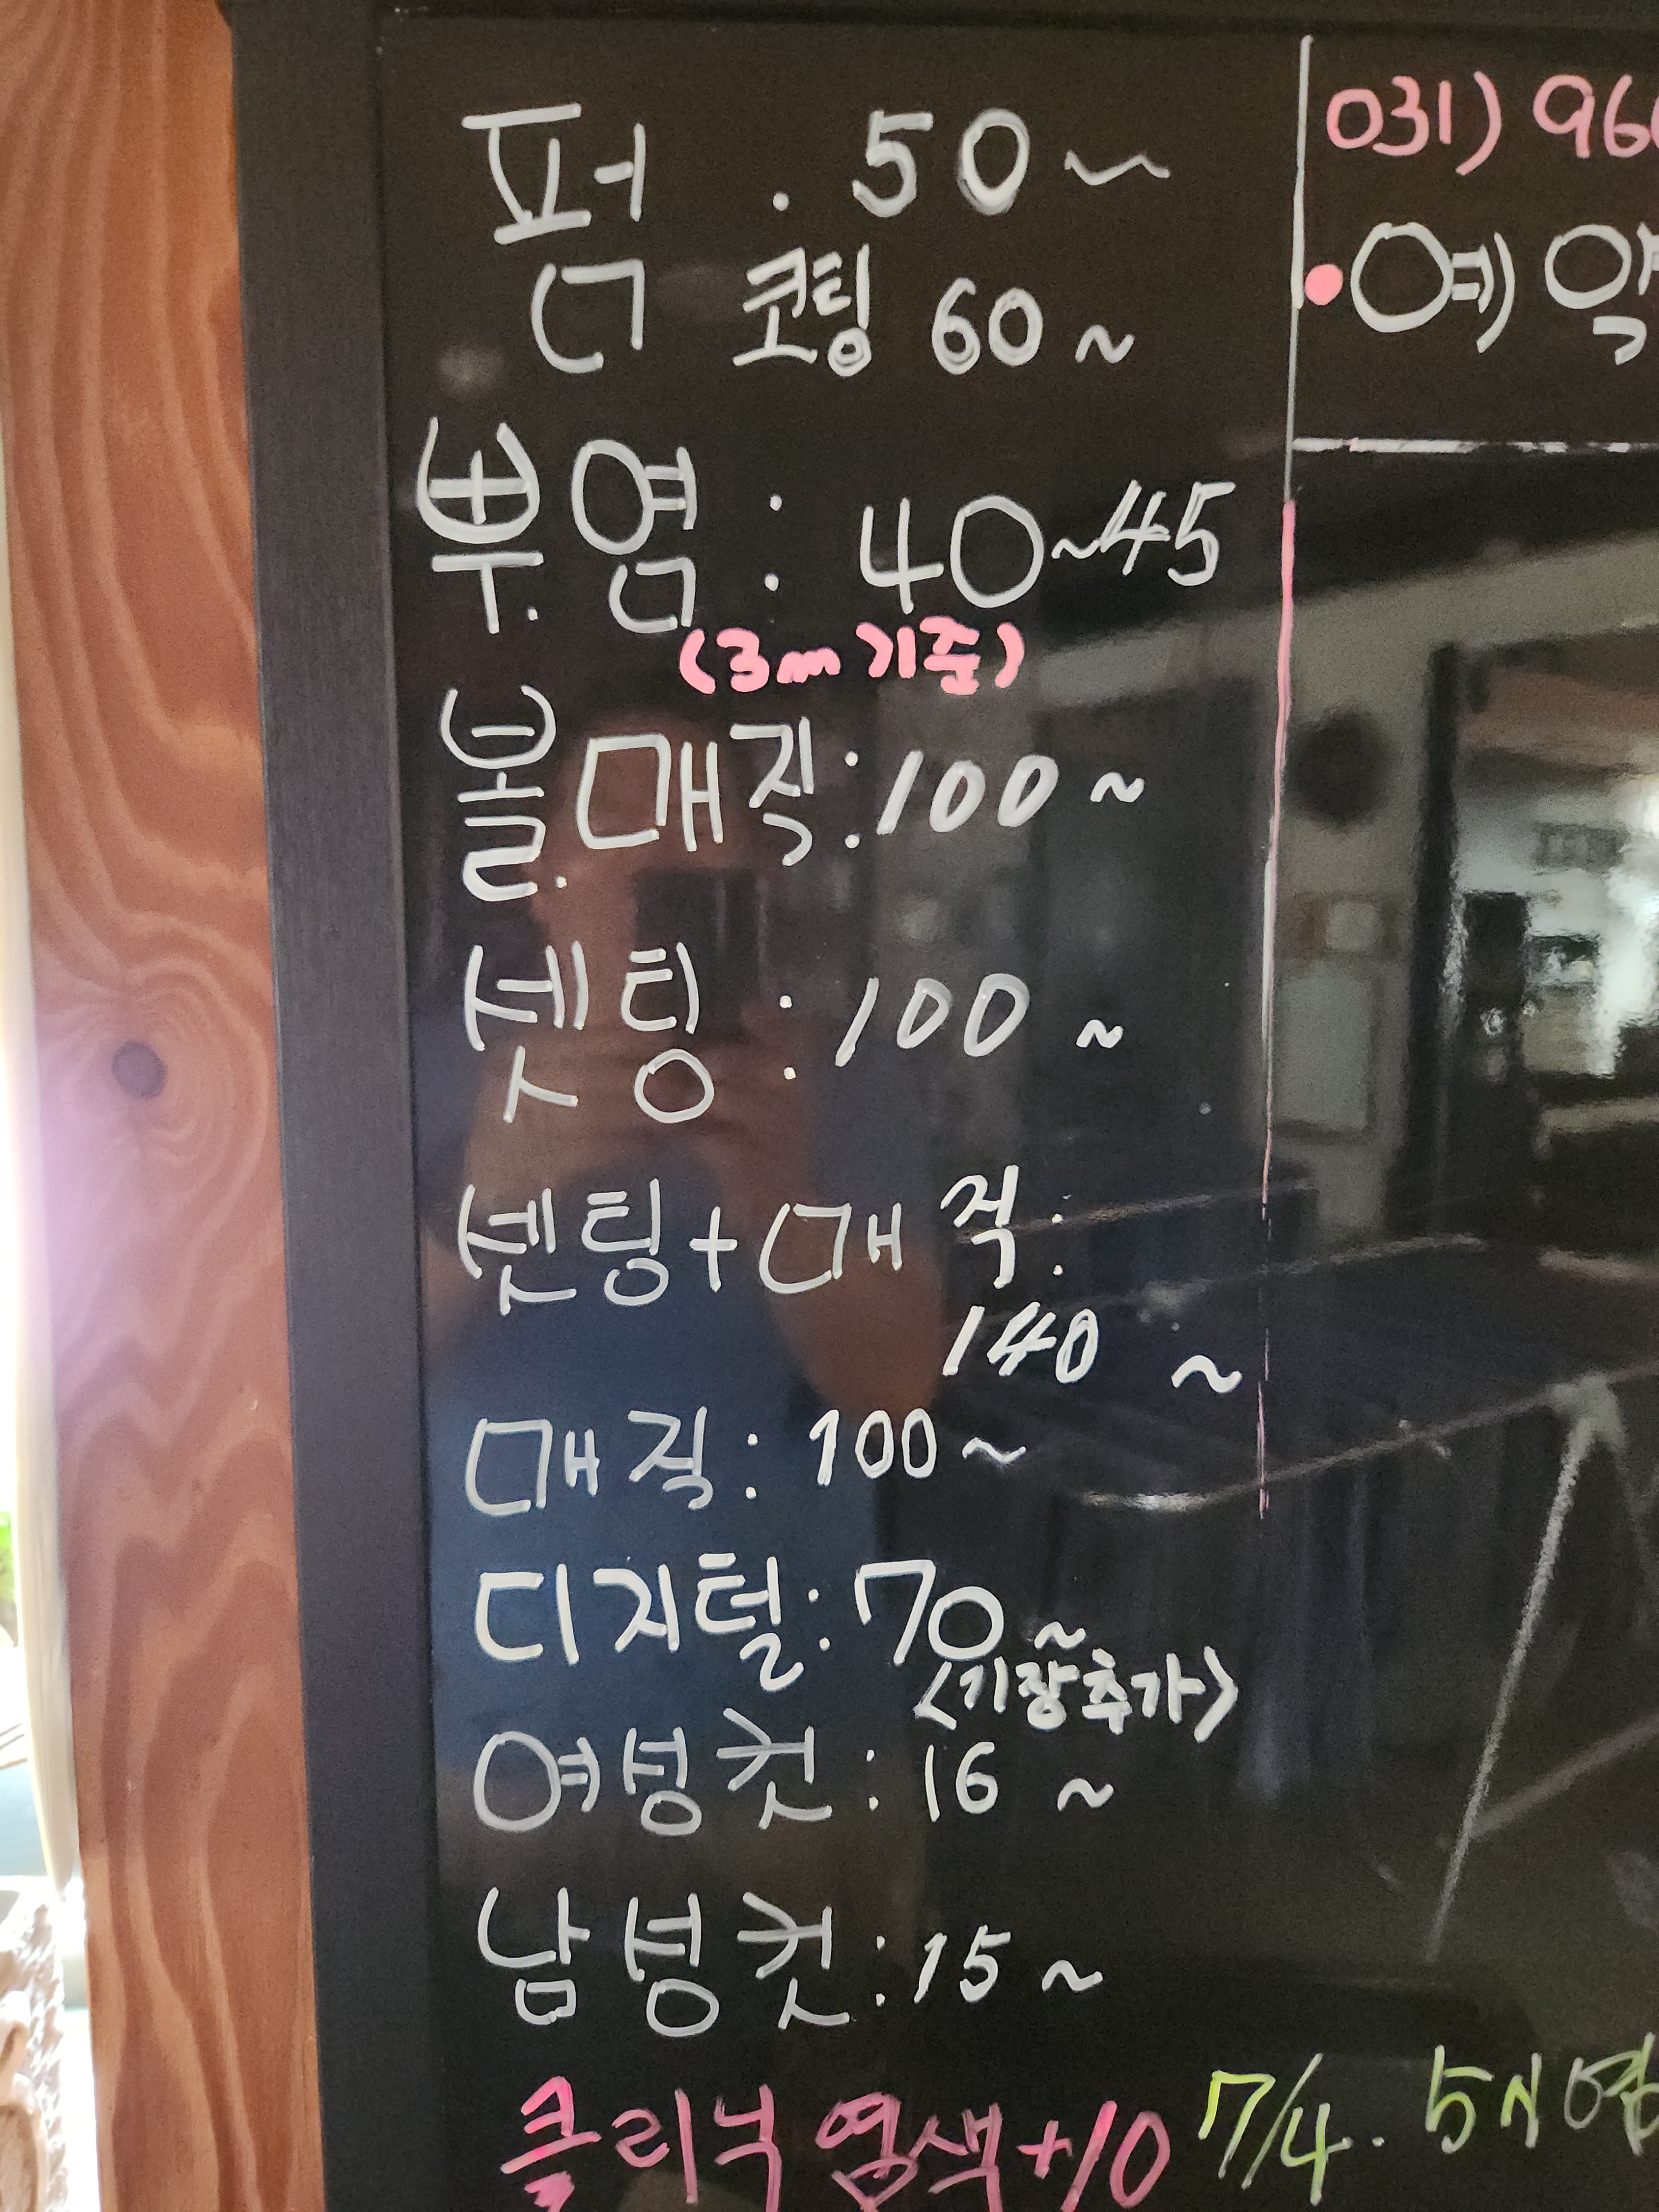 펌 . 50~
코팅 60~
뿌.염 : 40~45
(3m기준)
볼.매직:100~
셋팅 : 100 ~
셋팅+매직:
140 ~
매직: 100~
디지털: 70~
<기장추가>
여성컷: 16 ~
남성컷: 15 ~
클리닉 염색+10
031) 96
•예)
7/4. 5시